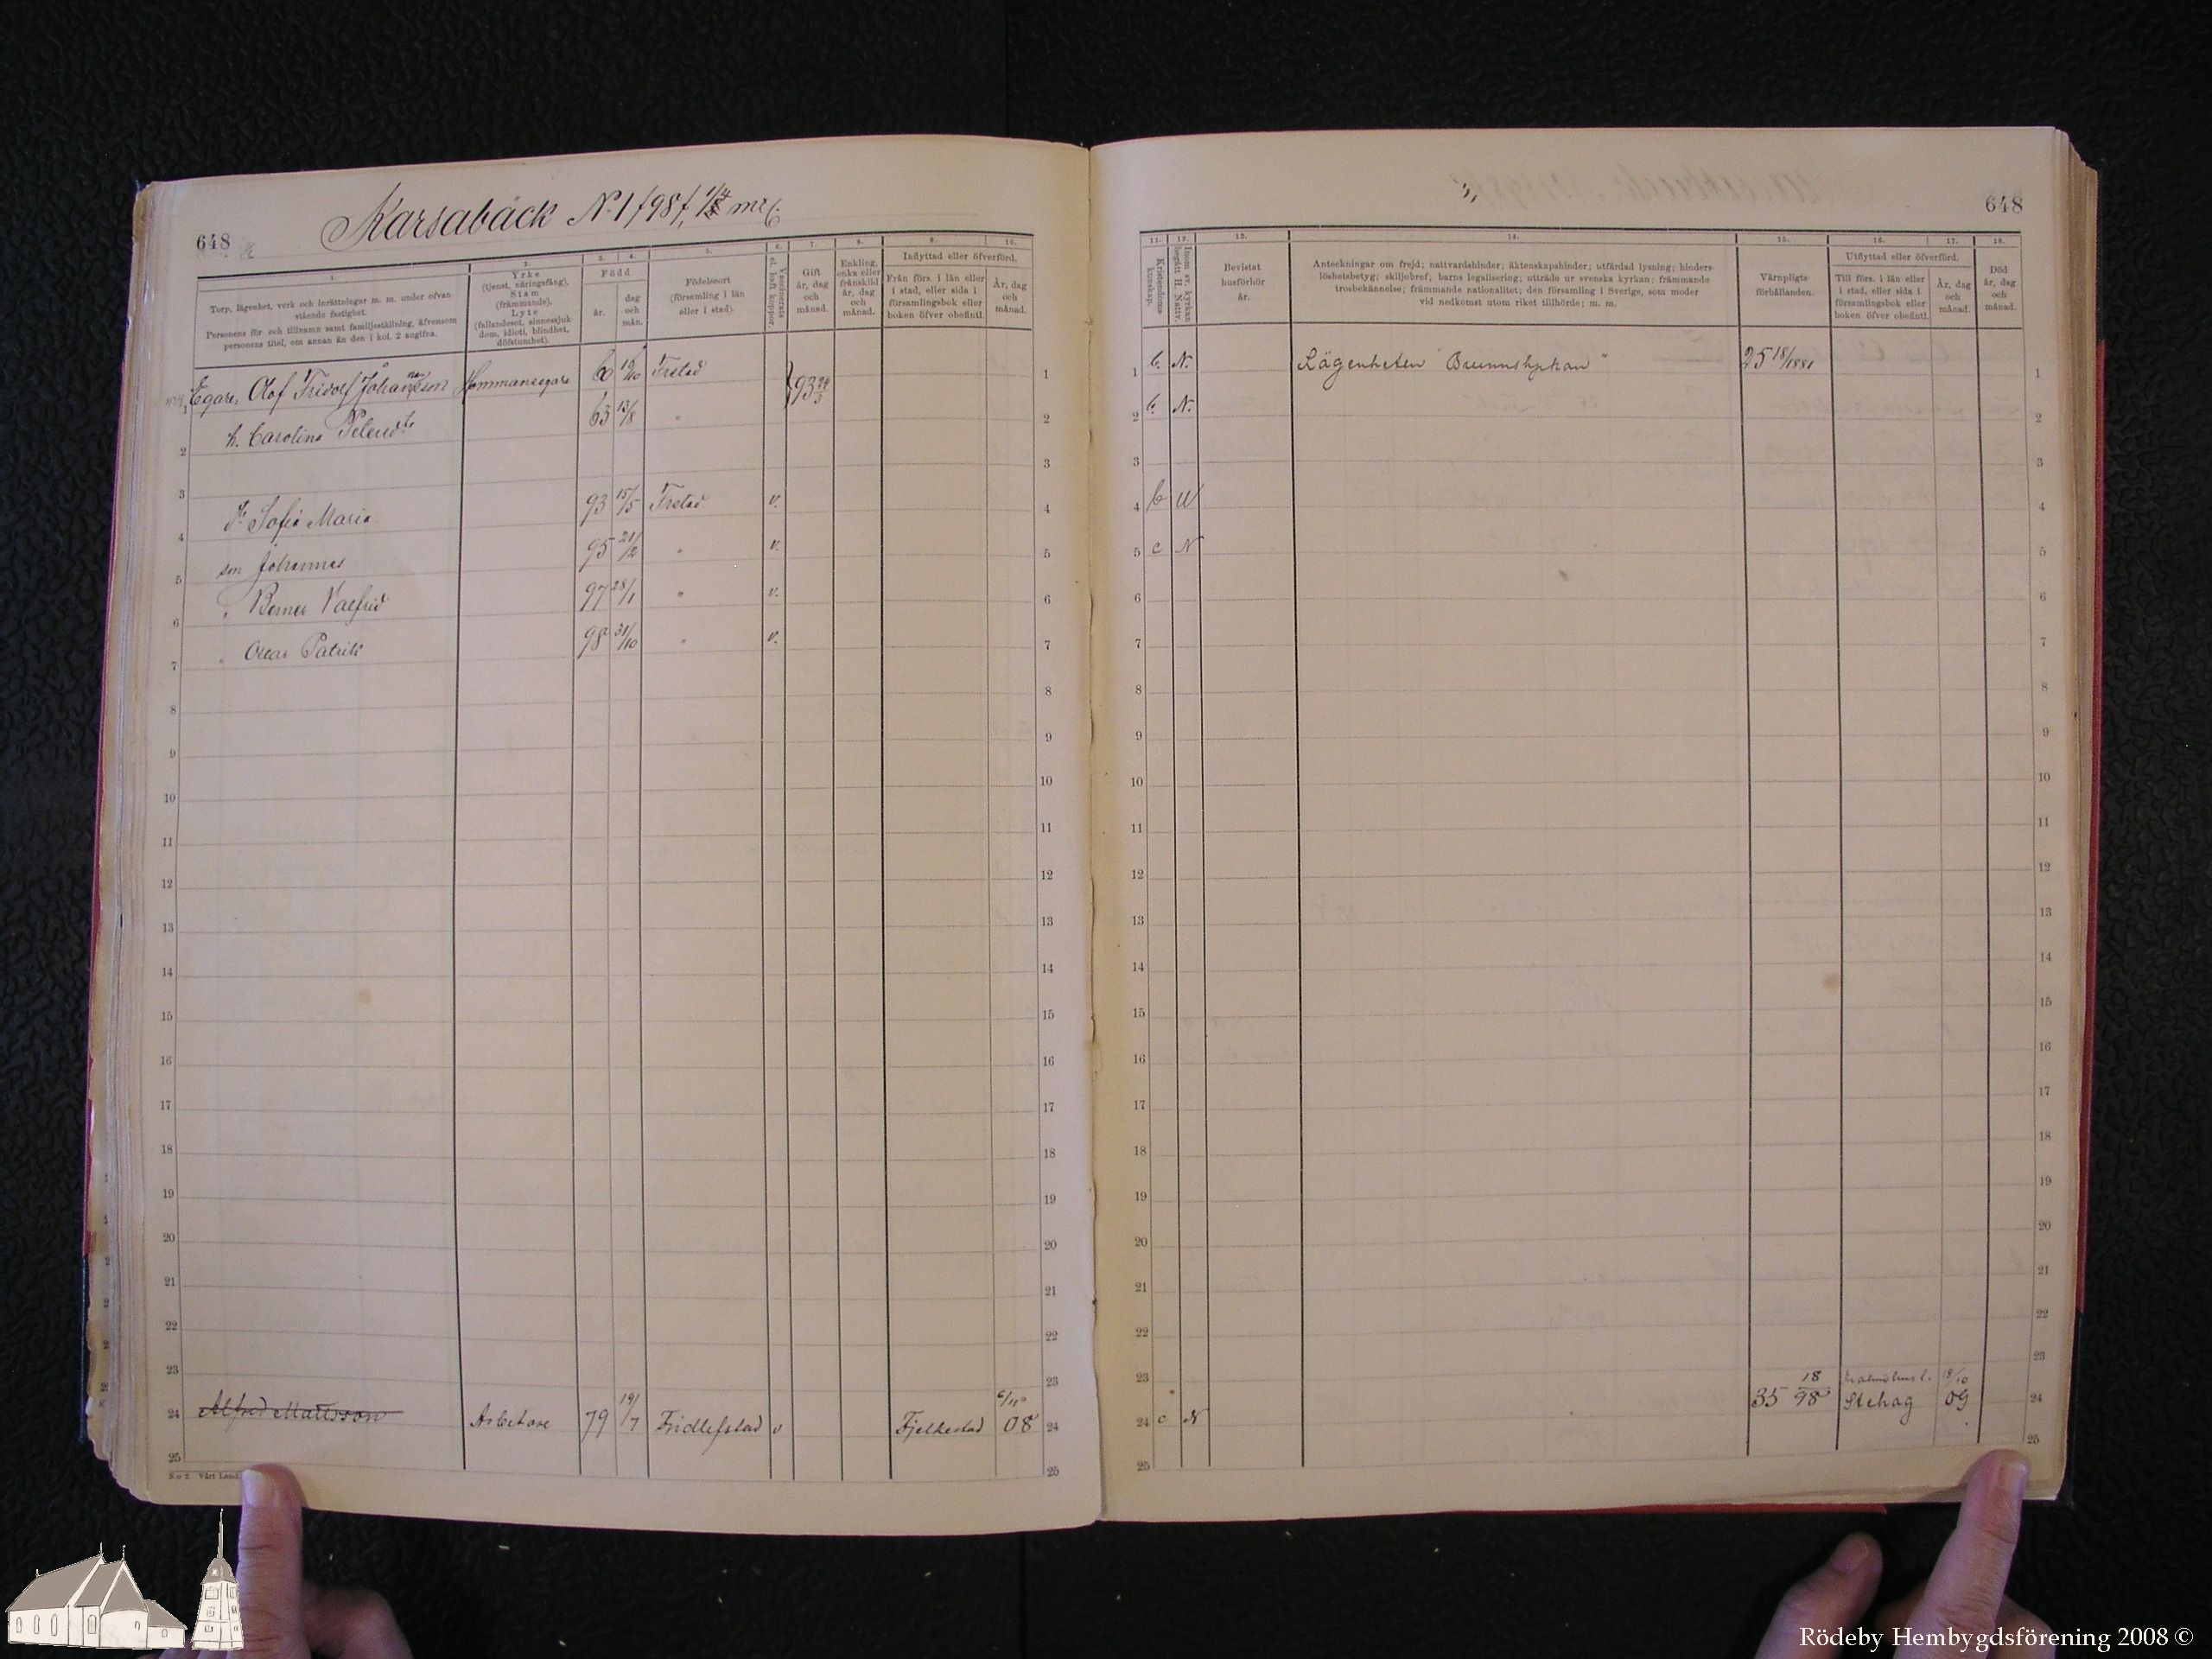 648
Karsabäck N:1 /98/,
648
1.
2.
3.
4.
5.
6.
7.
8.
9.
10.
Torp, lägenhet, verk och inrättningar m. m. under ofvan-
stående fastighet.
Personens för- och tillnamn samt familjeställning, äfvensom
personens titel, om annan än den i kol. 2 angifna.
Yrke
(tjenst, näringsfång),
Stam
(främmande),
Lyte
(fallandesot, sinnessjuk-
dom, idioti, blindhet,
döfstumhet).
Född
år.
dag
och
mån.
Födelseort
(församling i län
eller i stad).
Vaccinerats
el. haft koppor.
Gift
år, dag
och
månad.
Enkling,
enka eller
frånskild
år, dag
och
månad.
Inflyttad eller öfverförd.
Från förs. i län eller
i stad, eller sida i
församlingsbok eller
boken öfver obefintl.
År, dag
och
månad.
1 Egare, Olof Fridolf Johannesson Hemmansegare 60 12/10 Tretad } 93 24/3 1
2 h. Carolina Petersd:r 63 13/8 " 2
3 3
4 dr Sofia Maria 93 15/5 Tretad v. 4
5 son Johannes 95 21/2 " v. 5
6 " Berner Valfrid 97 28/1 " v. 6
7 " Oscar Patrik 98 31/10 " v. 7
8 8
9 9
10 10
11 11
12 12
13 13
14 14
15 15
16 16
17 17
18 18
19 19
20 20
21 21
22 22
23 23
24 Alfred Mattsson Arbetare 79 19/7 Fridlefstad v Fjelkestad 6/11 08 24
25 25
N:o 2. Vårt Land
11.
12.
13.
14.
15.
16.
17.
18.
Kristendoms-
kunskap.
Inom sv. kyrkan
begått H. Nattv.
Bevistat
husförhör
år.
Anteckningar om frejd; nattvardshinder; äktenskapshinder; utfärdad lysning; hinders-
löshetsbetyg; skiljobref; barns legalisering; utträde ur svenska kyrkan; främmande
trosbekännelse; främmande nationalitet; den församling i Sverige, som moder
vid nedkomst utom riket tillhörde; m. m.
Värnpligts-
förhållanden.
Utflyttad eller öfverförd.
Till förs. i län eller
i stad, eller sida i
församlingsbok eller
boken öfver obefintl.
År, dag
och
månad.
Död
år, dag
och
månad.
1 C. N. Lägenheten " 25 18/1881 1
2 C. N. 2
3 3
4 C U 4
5 c N 5
6 6
7 7
8 8
9 9
10 10
11 11
12 12
13 13
14 14
15 15
16 16
17 17
18 18
19 19
20 20
21 21
22 22
23 23
24 c N 35 18/98 Malmöhus l. Stehag 18/10 09 24
25 25
Rödeby Hembygdsförening 2008 ©